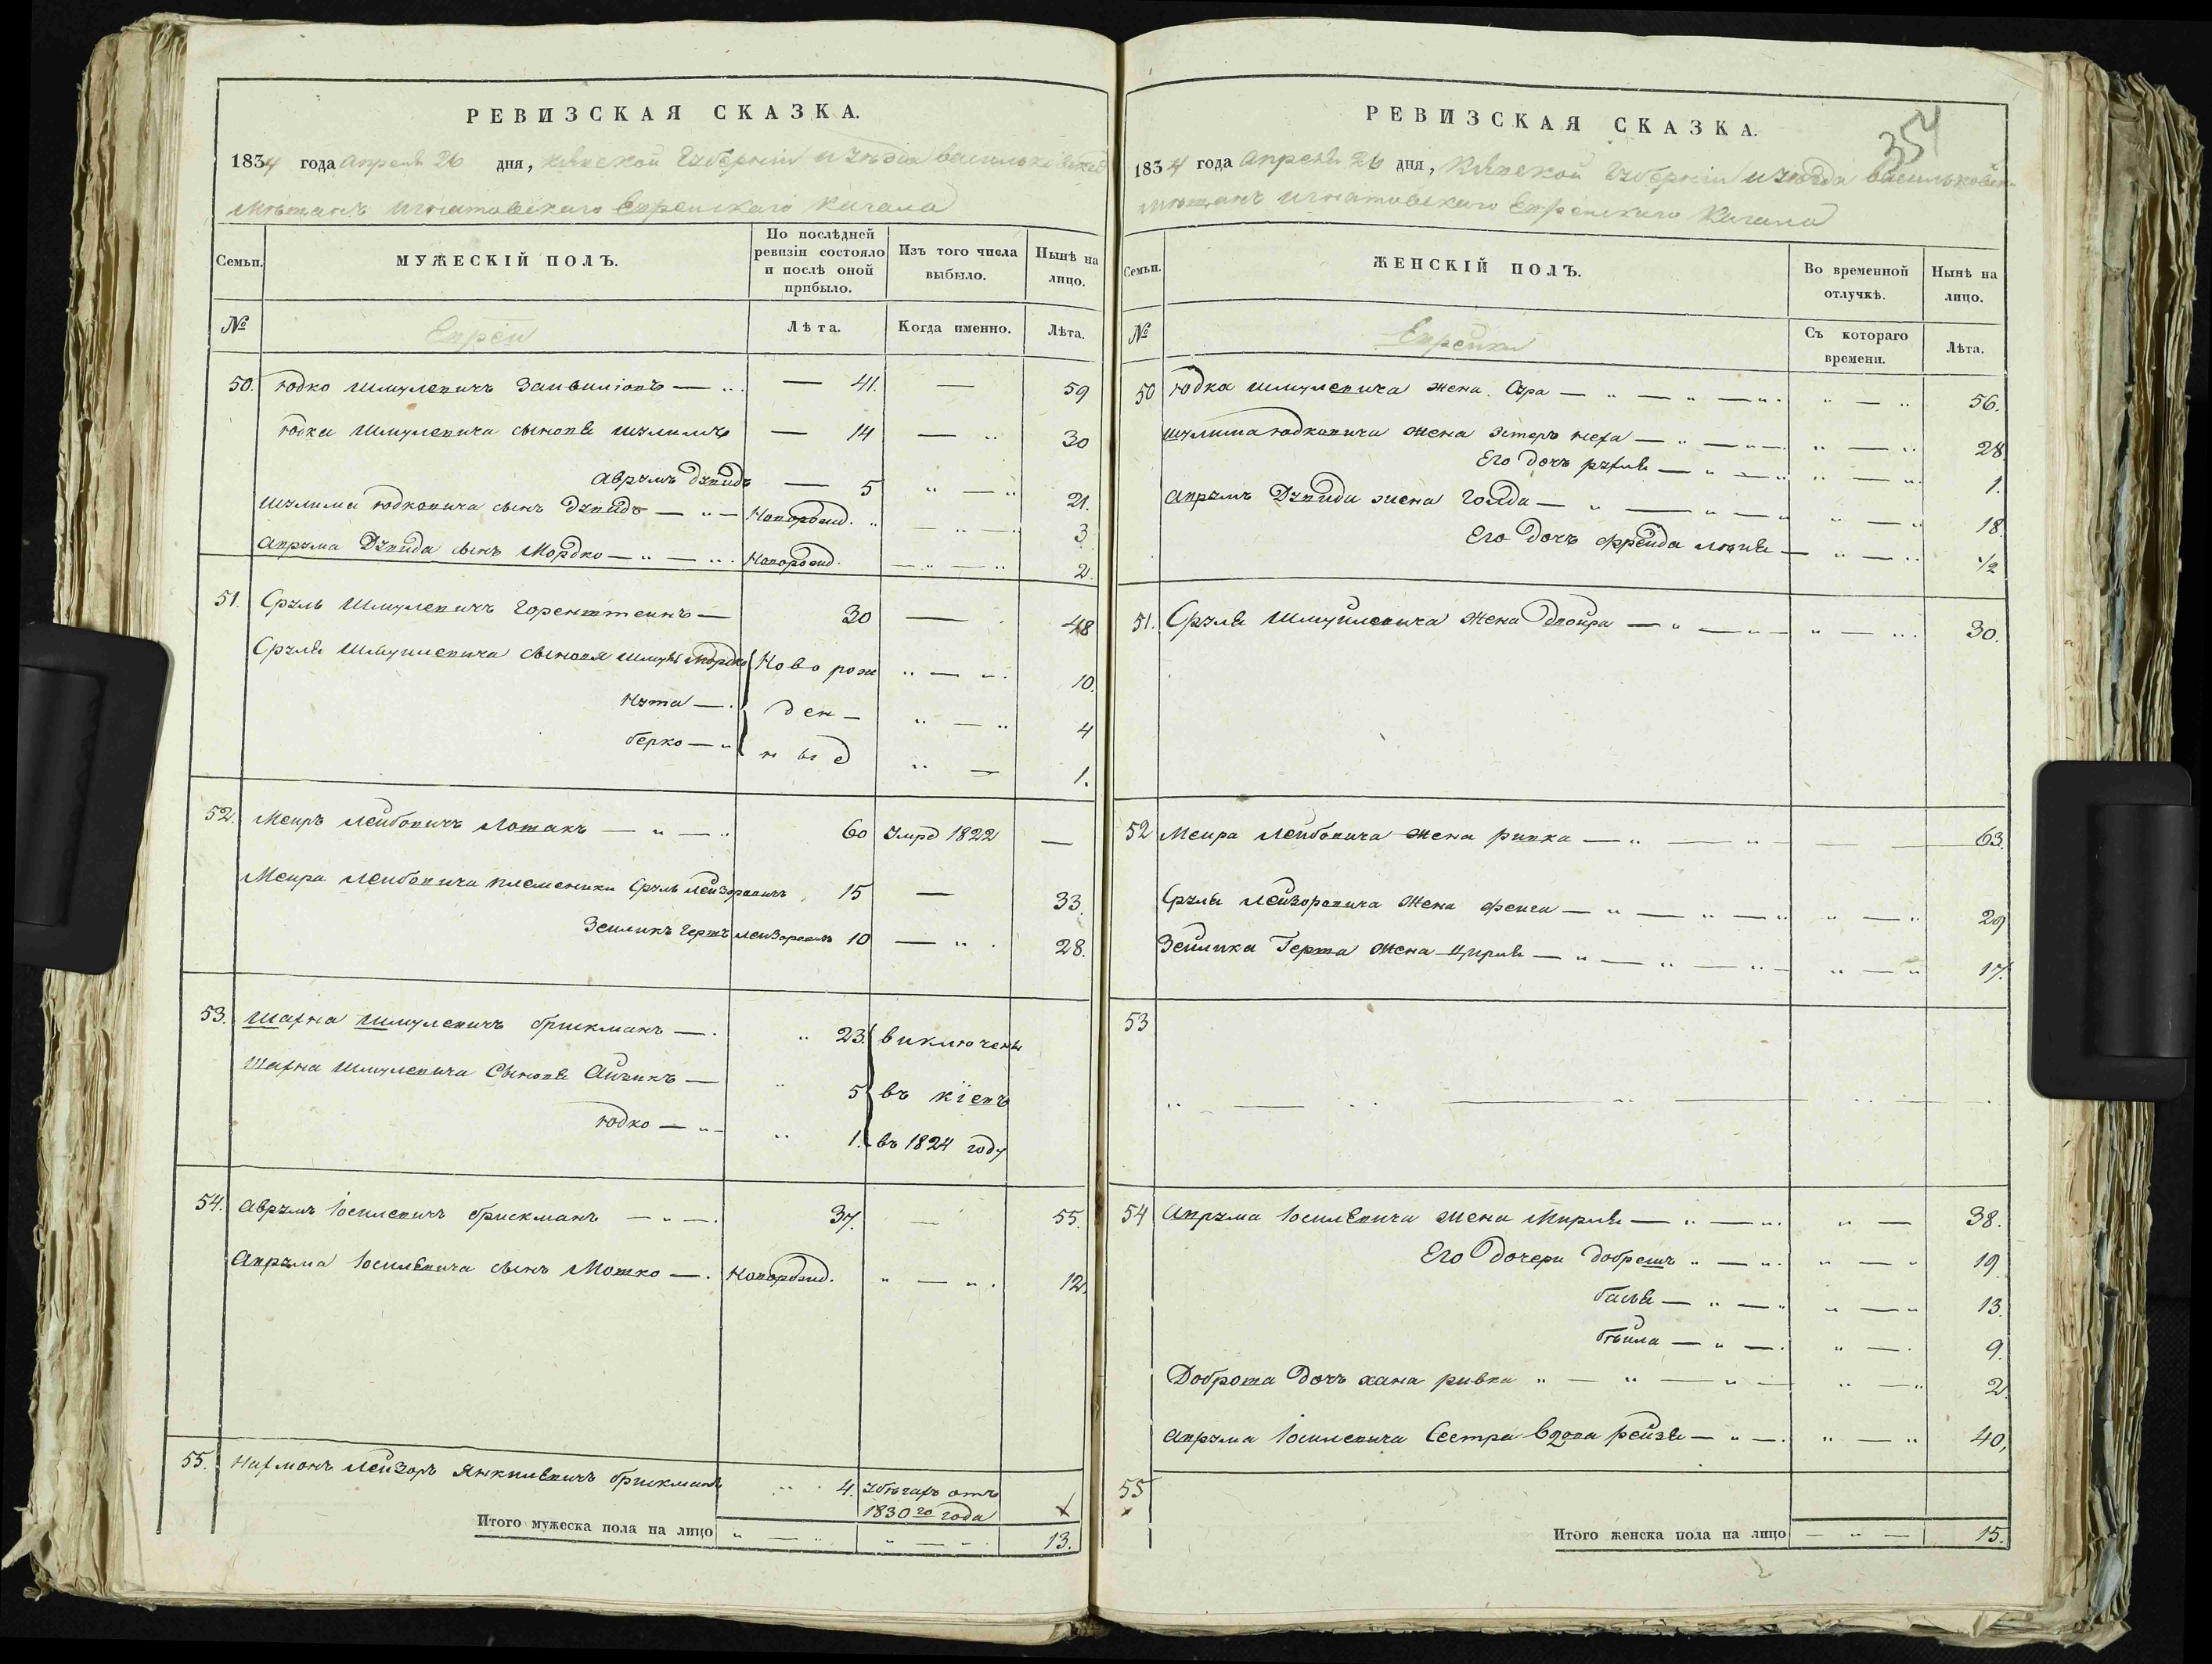 РЕВИЗСКАЯ СКАЗКА.
1834 года апреля 26 дня, Киевской Губернiи и уѣзда Васильковскаго
мѣщанъ Игнатовскаго Еврейскаго Кагала
Семьи.
МУЖЕСКIЙ ПОЛЪ.
По послѣдней ревизiи состояло и послѣ оной прибыло.
Изъ того числа выбыло.
Нынѣ на лицо.
№
Евреи
Лѣта.
Когда именно.
Лѣта.
50. Юдко Шмулевичъ — 41. — 59
Юдки Шмулевича сыновя Шулимъ — 14 — 30
Аврумъ Дувидъ — 5 — 21.
Шулима Юдковича сынъ Дувидъ — Новорожд. — 3
Аврума Дувида сынъ Мордко — Новорожд. — 2.
51. Сруль Шмулевичъ Горенштеинъ — 30 — 48
Сруля Шмуилевича сыновя Шмуль Мордко Новорож „ — 10.
Нута — ден- „ — 4
Берко — ныe „ — 1.
52. Меиръ Лейбовичъ Лотакъ — 60 Умре 1822 —
Меира Лейбовича племеники Сруль Лейзоровичъ 15 — 33.
Зеиликъ Гершъ Лейзоровичъ 10 — 28.
53. Шахна Шмулевичъ Брискманъ — 23. виключены
Шахна Шмулевича Сыновя Айзикъ — 5 въ Кiевъ
Юдко — 1. въ 1824 году
54. Аврумъ Iосилевичъ Брискманъ — 37. — 55.
Аврума Iосилевича сынъ Мошко — Новорожд. „ — 12.
55. Нахманъ Лейзоръ Янкилевичъ Брискманъ 4. Убѣгахъ отъ
1830го года
Итого мужеска пола на лицо „ — „ „ — „ 13.
РЕВИЗСКАЯ СКАЗКА.
354
1834 года апреля 26 дня, Киевской Губернiи и уѣзда Васильковск
мѣщанъ Игнатовскаго Еврейскаго Кагала
Семьи.
ЖЕНСКIЙ ПОЛЪ.
Во временной отлучкѣ.
Нынѣ на лицо.
№
Еврейки
Съ котораго времени.
Лѣта.
50 Юдка Шмулевича жена Сура — „ — „ 56.
Шулима Юдковича жена Эстеръ Неха — „ — „ 28.
Его дочъ Рухля — „ — „ 1.
Аврумъ Дувида жена Голда — „ — „ 18.
Его дочъ Фрейда — „ — „ 1/2
51. Сруля Шмуилевича жена Двойра — „ — „ 30.
52 Меира Лейбовича жена Ривка — „ — 63.
Сруля Лейзоровича жена Феига — „ — „ 29
Зейлика Герша жена Цирля — „ — „ 17.
53
54 Аврума Iосилевича жена Мирля — „ — 38.
Его дочери Добрешъ „ — „ 19.
Бася — „ — „ 13.
Бѣйла — „ — 9.
Доброша дочъ Хана Ривка „ — „ 2.
Аврума Iосилевича Сестра вдова Рейзя — „ — „ 40,
55
Итого женска пола на лицо — „ — 15.